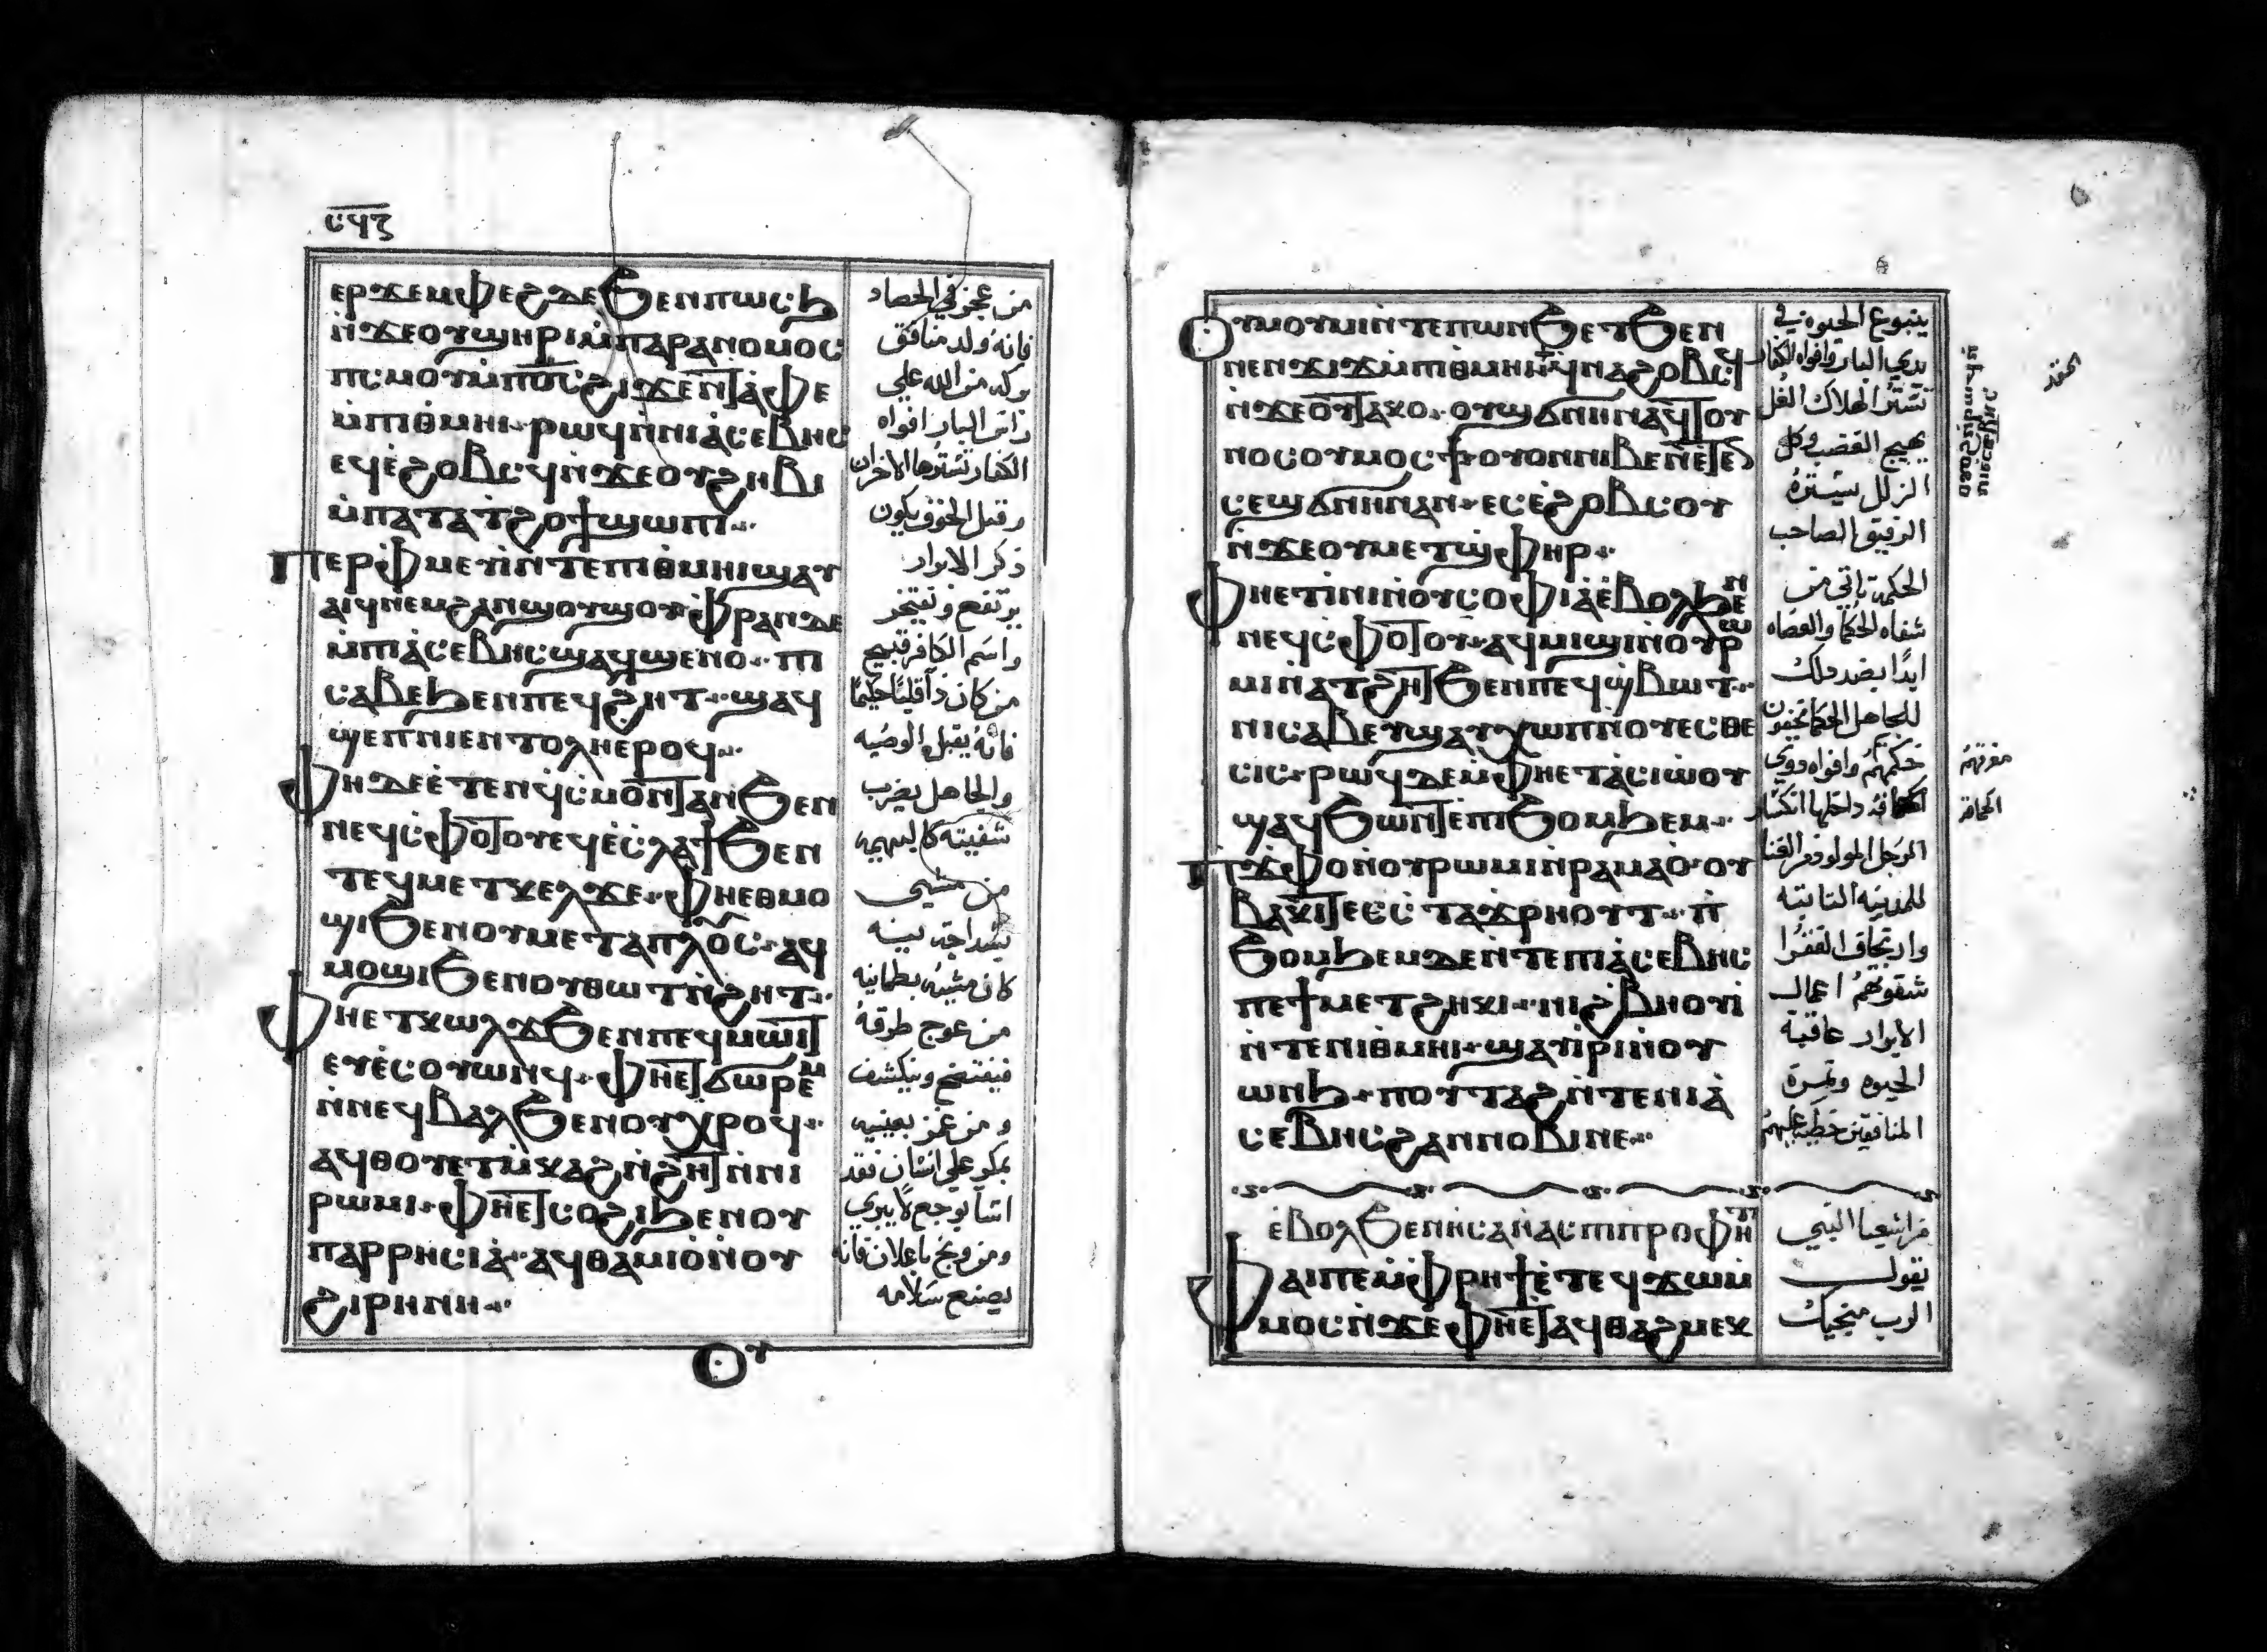 ⲥϥⲍ
ⲉⲣϫⲉⲙⲫⲉϩ ⲇⲉ ϧⲉⲛ ⲡⲱⲥϧ
ⲛ̀ϫⲉ ⲟⲩϣⲏⲣⲓ ⲙ̀ⲡⲁⲣⲁⲛⲟⲙⲟⲥ
ⲡⲥⲙⲟⲩ ⲙ̀ⲡⲟ̅ⲥ̅ ϩⲓϫⲉⲛ ⲧⲁ̀ⲫⲉ
ⲙ̀ⲡⲓⲑⲙⲏⲓ ⲣⲱϥ ⲛ̀ⲛⲓⲁ̀ⲥⲉⲃⲏⲥ
ⲉϥⲉ̀ϩⲟⲃⲥϥ ⲛ̀ϫⲉ ⲟⲩϩⲏⲃⲓ
ⲙ̀ⲡⲁⲧⲁⲧϩⲟϯ ϣⲱⲡⲓ
ⲡⲉⲣⲫ̀ⲙⲉⲩⲓ̀ ⲛ̀ⲧⲉ ⲡⲓⲑⲙⲏⲓ ϣⲁⲩ
ⲁⲓϥ ⲛⲉⲙ ϩⲁⲛϣⲟⲩϣⲟⲩ ⲫ̀ⲣⲁⲛ ⲇⲉ
ⲙ̀ⲡⲓⲁ̀ⲥⲉⲃⲏⲥ ϣⲁϥϣⲉⲛⲟ ⲡⲓ
ⲥⲁⲃⲉ ϧⲉⲛ ⲡⲉϥϩⲏⲧ ϣⲁϥ
ϣⲉⲡ ⲛⲓⲉⲛⲧⲟⲗⲏ ⲉⲣⲟϥ
ⲫⲏ ⲇⲉ ⲉ̀ⲧⲉⲛϥⲥⲙⲟⲛⲧ ⲁⲛ ϧⲉⲛ
ⲛⲉϥⲥ̀ⲫⲟⲧⲟⲩ ⲉϥⲉ̀ⲥⲗⲁϯ ϧⲉⲛ
ⲧⲉϥⲙⲉⲧⲭⲉⲗϫⲉ ⲫⲏⲉⲑⲙⲟ
ϣⲓ ϧⲉⲛ ⲟⲩⲙⲉⲧⲁⲡⲗⲟⲩⲥ ⲁϥ
ⲙⲟϣⲓ ϧⲉⲛ ⲟⲩⲑⲱⲧ ⲛ̀ϩⲏⲧ
ⲫⲏⲉⲧⲕⲱⲗϫ ϧⲉⲛ ⲡⲉϥⲙⲱⲓⲧ
ⲉⲩⲉ̀ⲥⲟⲩⲱⲛϥ ⲫⲏⲉⲧϭⲱⲣⲉⲙ
ⲛ̀ⲛⲉϥⲃⲁⲗ ϧⲉⲛ ⲟⲩⲭⲣⲟϥ
ⲁϥⲑⲟⲩⲉⲧ ⲙ̀ⲕⲁϩ ⲛ̀ϩⲏⲧ ⲛ̀ⲛⲓ
ⲣⲱⲙⲓ ⲫⲏⲉⲧⲥⲟϩⲓ ϧⲉⲛ ⲟⲩ
ⲡⲁⲣⲣⲏⲥⲓⲁ̀ ⲁϥⲑⲁⲙⲓⲟ̀ ⲛ̀ⲟⲩ
ϩⲓⲣⲏⲛⲏ
ⲟⲩ
من عجز في الحصاد
فانه ولد منافق
بركه من الله علي
راس البار افواه
الكفار تسترها الاحزان
وقبل الخوف يكون
ذكر الابرار
يرتفع ويفتخر
واسم الكافر قبيح
من كان ذا قلبًا حكيمًا
فانه يقبل الوصيه
والجاهل يضرب
شفتيه كالبهيمه
من مشي
كان مشيه بطمانينه
من عوج طرقه
فيفتضح وينكشف
ومن غمز بعينيه
بمكر علي انسان فقد
ومن وبخ باعلان فانه
يصنع سلامه
ⲟⲩⲙⲟⲩⲙⲓ ⲛ̀ⲧⲉ ⲡⲱⲛϧ ⲉⲧϧⲉⲛ
ⲛⲉⲛϫⲓϫ ⲙ̀ⲡⲓⲑⲙⲏⲓ ϥⲛⲁϩⲟⲃⲥϥ
ⲛ̀ϫⲉ ⲟⲩⲧⲁⲕⲟ ⲟⲩϣϭⲛⲏⲛ ⲁϥⲧⲟⲩ
ⲛⲟⲥ ⲟⲩⲙⲟⲥϯ ⲟⲩⲟⲛ ⲛⲓⲃⲉⲛ ⲉ̀ⲧⲉ
ⲥⲉϣϭⲛⲏⲛ ⲁⲛ ⲉⲥⲉ̀ϩⲟⲃⲥⲟⲩ
ⲛ̀ϫⲉ ⲟⲩⲙⲉⲧϣ̀ⲫⲏⲣ
ⲫⲏⲉⲧⲓ̀ⲛⲓ ⲛ̀ⲟⲩⲥⲟⲫⲓⲁ̀ ⲉ̀ⲃⲟⲗϧⲉⲛ
ⲛⲉϥⲥ̀ⲫⲟⲧⲟⲩ ⲁϥⲙⲓϣⲓ ⲛ̀ⲟⲩⲣⲱ
ⲙⲓ ⲛ̀ⲁⲧϩⲏⲧ ϧⲉⲛ ⲡⲉϥϣ̀ⲃⲱⲧ
ⲛⲓⲥⲁⲃⲉⲩ ϣⲁⲩⲭⲱⲡ ⲛⲟⲩⲉⲥⲑⲉ
ⲥⲓⲥ ⲣⲱϥ ⲇⲉ ⲙ̀ⲫⲏⲉⲧⲁⲥⲓⲱⲟⲩ
ϣⲁϥϧⲱⲛⲧ ⲉⲡⲓϧⲟⲙϧⲉⲙ
ⲡϫ̀ⲫⲟ ⲛ̀ⲟⲩⲣⲱⲙⲓ ⲛ̀ⲣⲁⲙⲁⲟ̀ ⲟⲩ
ⲃⲁⲕⲓ ⲧⲉ ⲉⲥⲧⲁϫⲣⲏⲟⲩⲧ ⲡ
ϧⲟⲙϧⲉⲙ ⲇⲉ ⲛ̀ⲧⲉ ⲡⲓⲁ̀ⲥⲉⲃⲏⲥ
ⲡⲉ ϯⲙⲉⲧϩⲏⲕⲓ ⲛⲓϩⲃⲏⲟⲩⲓ̀
ⲛ̀ⲧⲉ ⲛⲓⲑⲙⲏⲓ ϣⲁⲩⲓ̀ⲣⲓ ⲛ̀ⲟⲩ
ⲱⲛϧ ⲡⲟⲩⲧⲁϩ ⲛ̀ⲧⲉ ⲛⲓⲁ̀
ⲥⲉⲃⲏⲥ ϩⲁⲛⲛⲟⲃⲓ ⲛⲉ
ⲉ̀ⲃⲟⲗϧⲉⲛ ⲏⲥⲁⲏ̀ⲁⲥ ⲡⲓⲡⲣⲟⲫⲏⲧ
ⲫⲁⲓ ⲡⲉ ⲙ̀ⲫⲣⲏϯ ⲉ̀ⲧⲉϥϫⲱ ⲙ̀
ⲙⲟⲥ ⲛ̀ϫⲉ ⲫⲏⲉⲧⲁϥⲑⲁϩⲙⲉⲕ
ينبوع الحيوه في
يدي البار وافواه الكفار
تستر الهلاك الغل
يهيج الغضب وكل
الزلل يستره
الرفيق الصاحب
الحكمه ياتي من
شفاه الحكما والعصاه
للجاهل الحكما يخفون
حكمتهم وافواه ذوي
الرجل المولود في الغنا
للمدينه الثابته
شقوتهم اعمال
الابرار عاقبة
الحيوه وثمرة
المنافقين خطيه عليهم
من اشعيا النبي
يقول
الرب منجيك
معرفتهم